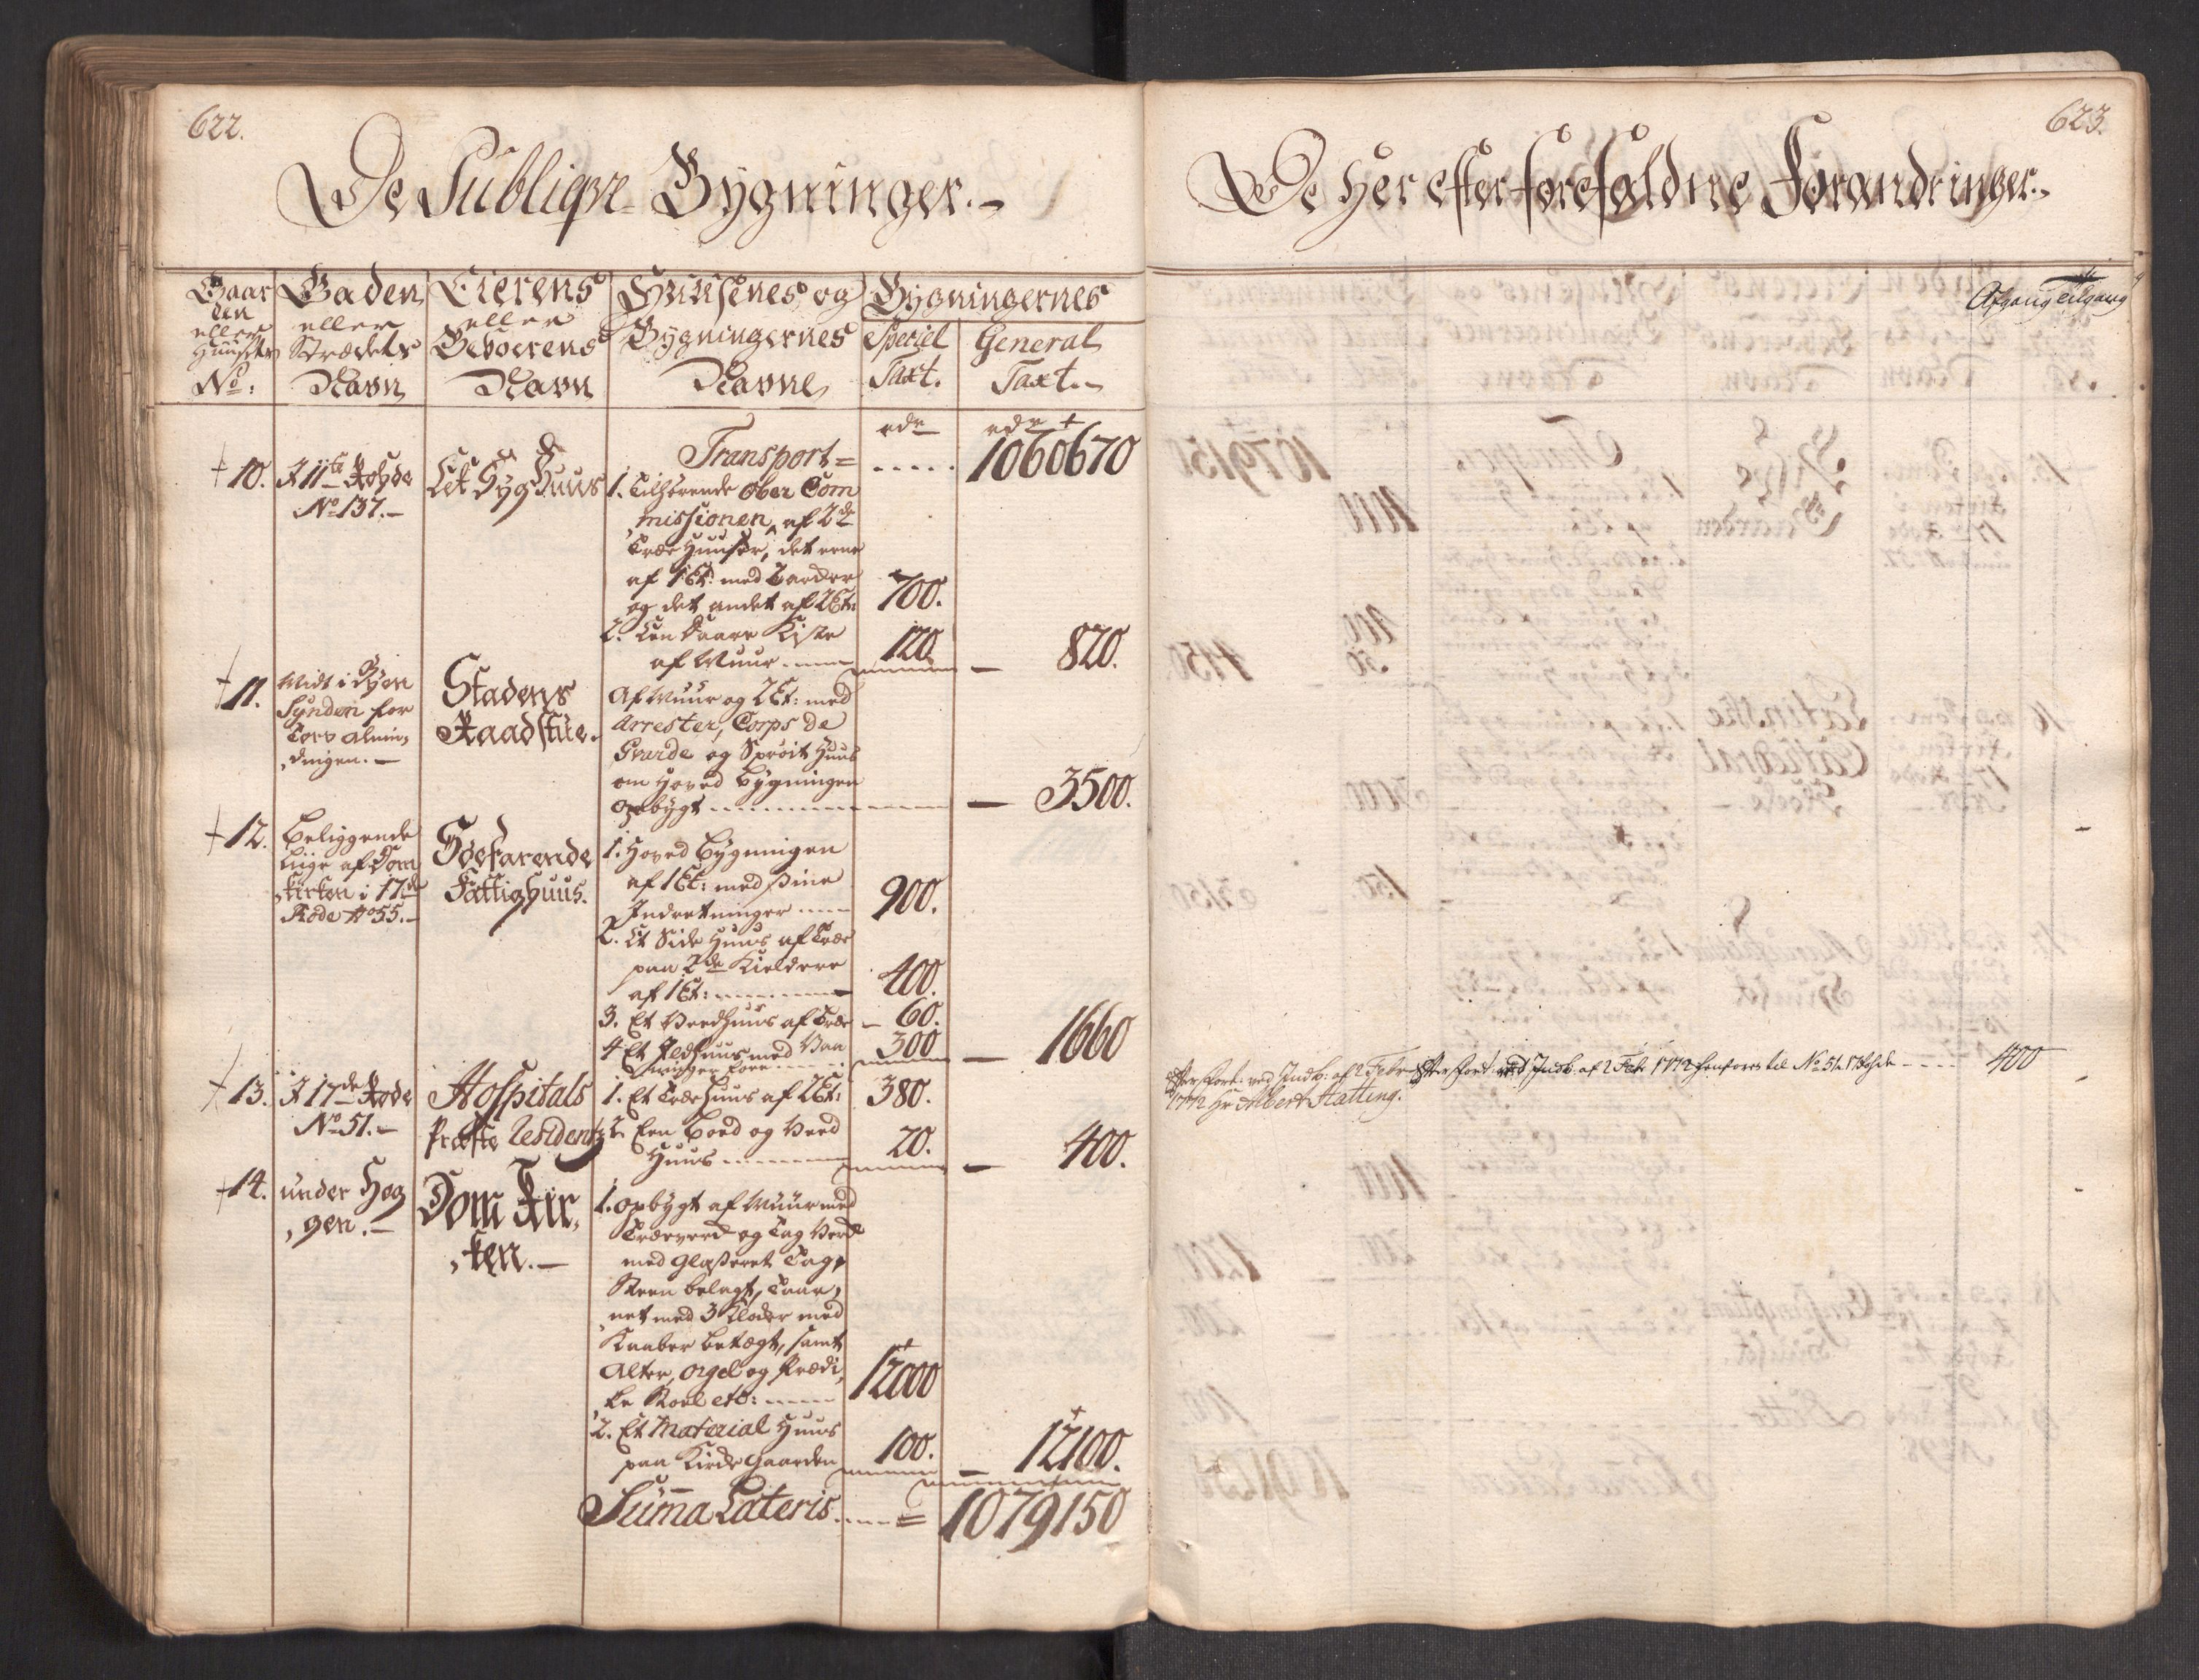 622.
De Publique Bygninger.
Gaar
den
eller
Huusets
No:
Gaden
eller
Strædets
Navn
Eierens
eller
Beboerens
Navn
Huusenes og
Bygningernes
Navne
Bygningernes
Speciel
Taxt.
General
Taxt.
rdr
rdr
Transport = ..... 1060670
10. I 11te Rohde
No 137.
Eet Syg Huus
1. Tilhørende Ober Com
missionen, af 2de
Træe Huuser, det eene
af 1 Et: med
og det andet af 2 Et: 700.
2. Een Kiste
af Muur ..... 120. — 820.
11. Midt i Byen
Synden for
Torv Almin
dingen.
Stadens
Raadstue.
Af Muur og 2 Et: med
Arrester, Corps de
Gvarde og Sprøit Huus
om Hoved Bygningen
opbygt ..... — 3500.
12. Beliggende
liige af Dom
Kirken i 17de
Rode No 55.
Søefarende
Fattighuus.
1. Hoved Bygningen
af 1 Et: med sine
Indretninger ..... 900.
2. Et Side Huus af Træe
paa 2de Kieldere
af 1 Et: ..... 400.
3. Et Veedhuus af Træe — 60.
4 Et Ildhuus med Vaa
ninger ..... 300 — 1660
13. I 17de Rode
No 51.
Hospitals
Præste Residentz
1. Et Træehuus af 2 Et: 380.
2. Een Boed og Veed
Huus ..... 20. — 400.
14. under Heg
gen.
Dom Kir
ken.
1. opbygt af Muur med
Træeverk og Tag Verk
med Glasseret Tag
Steen belagt, Taar
net med 3 Klokker med
Kaaber betegt, samt
Alter, Orgel og Prædi
ke Stoel etc: ..... 12000
2. Et Material Huus
paa Kirke Gaarden 100. — 12100.
Summa Lateris ..... = 1079150
623.
De Her efter forefaldne Forandringer.
Afgang tilgang
Efter fort: ved Indb: af 2 Febr
1772 Hr Albert Hatting.
Efter fort: ved Indb. af 2 Febr 1772 henføres til No 51 17 Rhde ..... 400